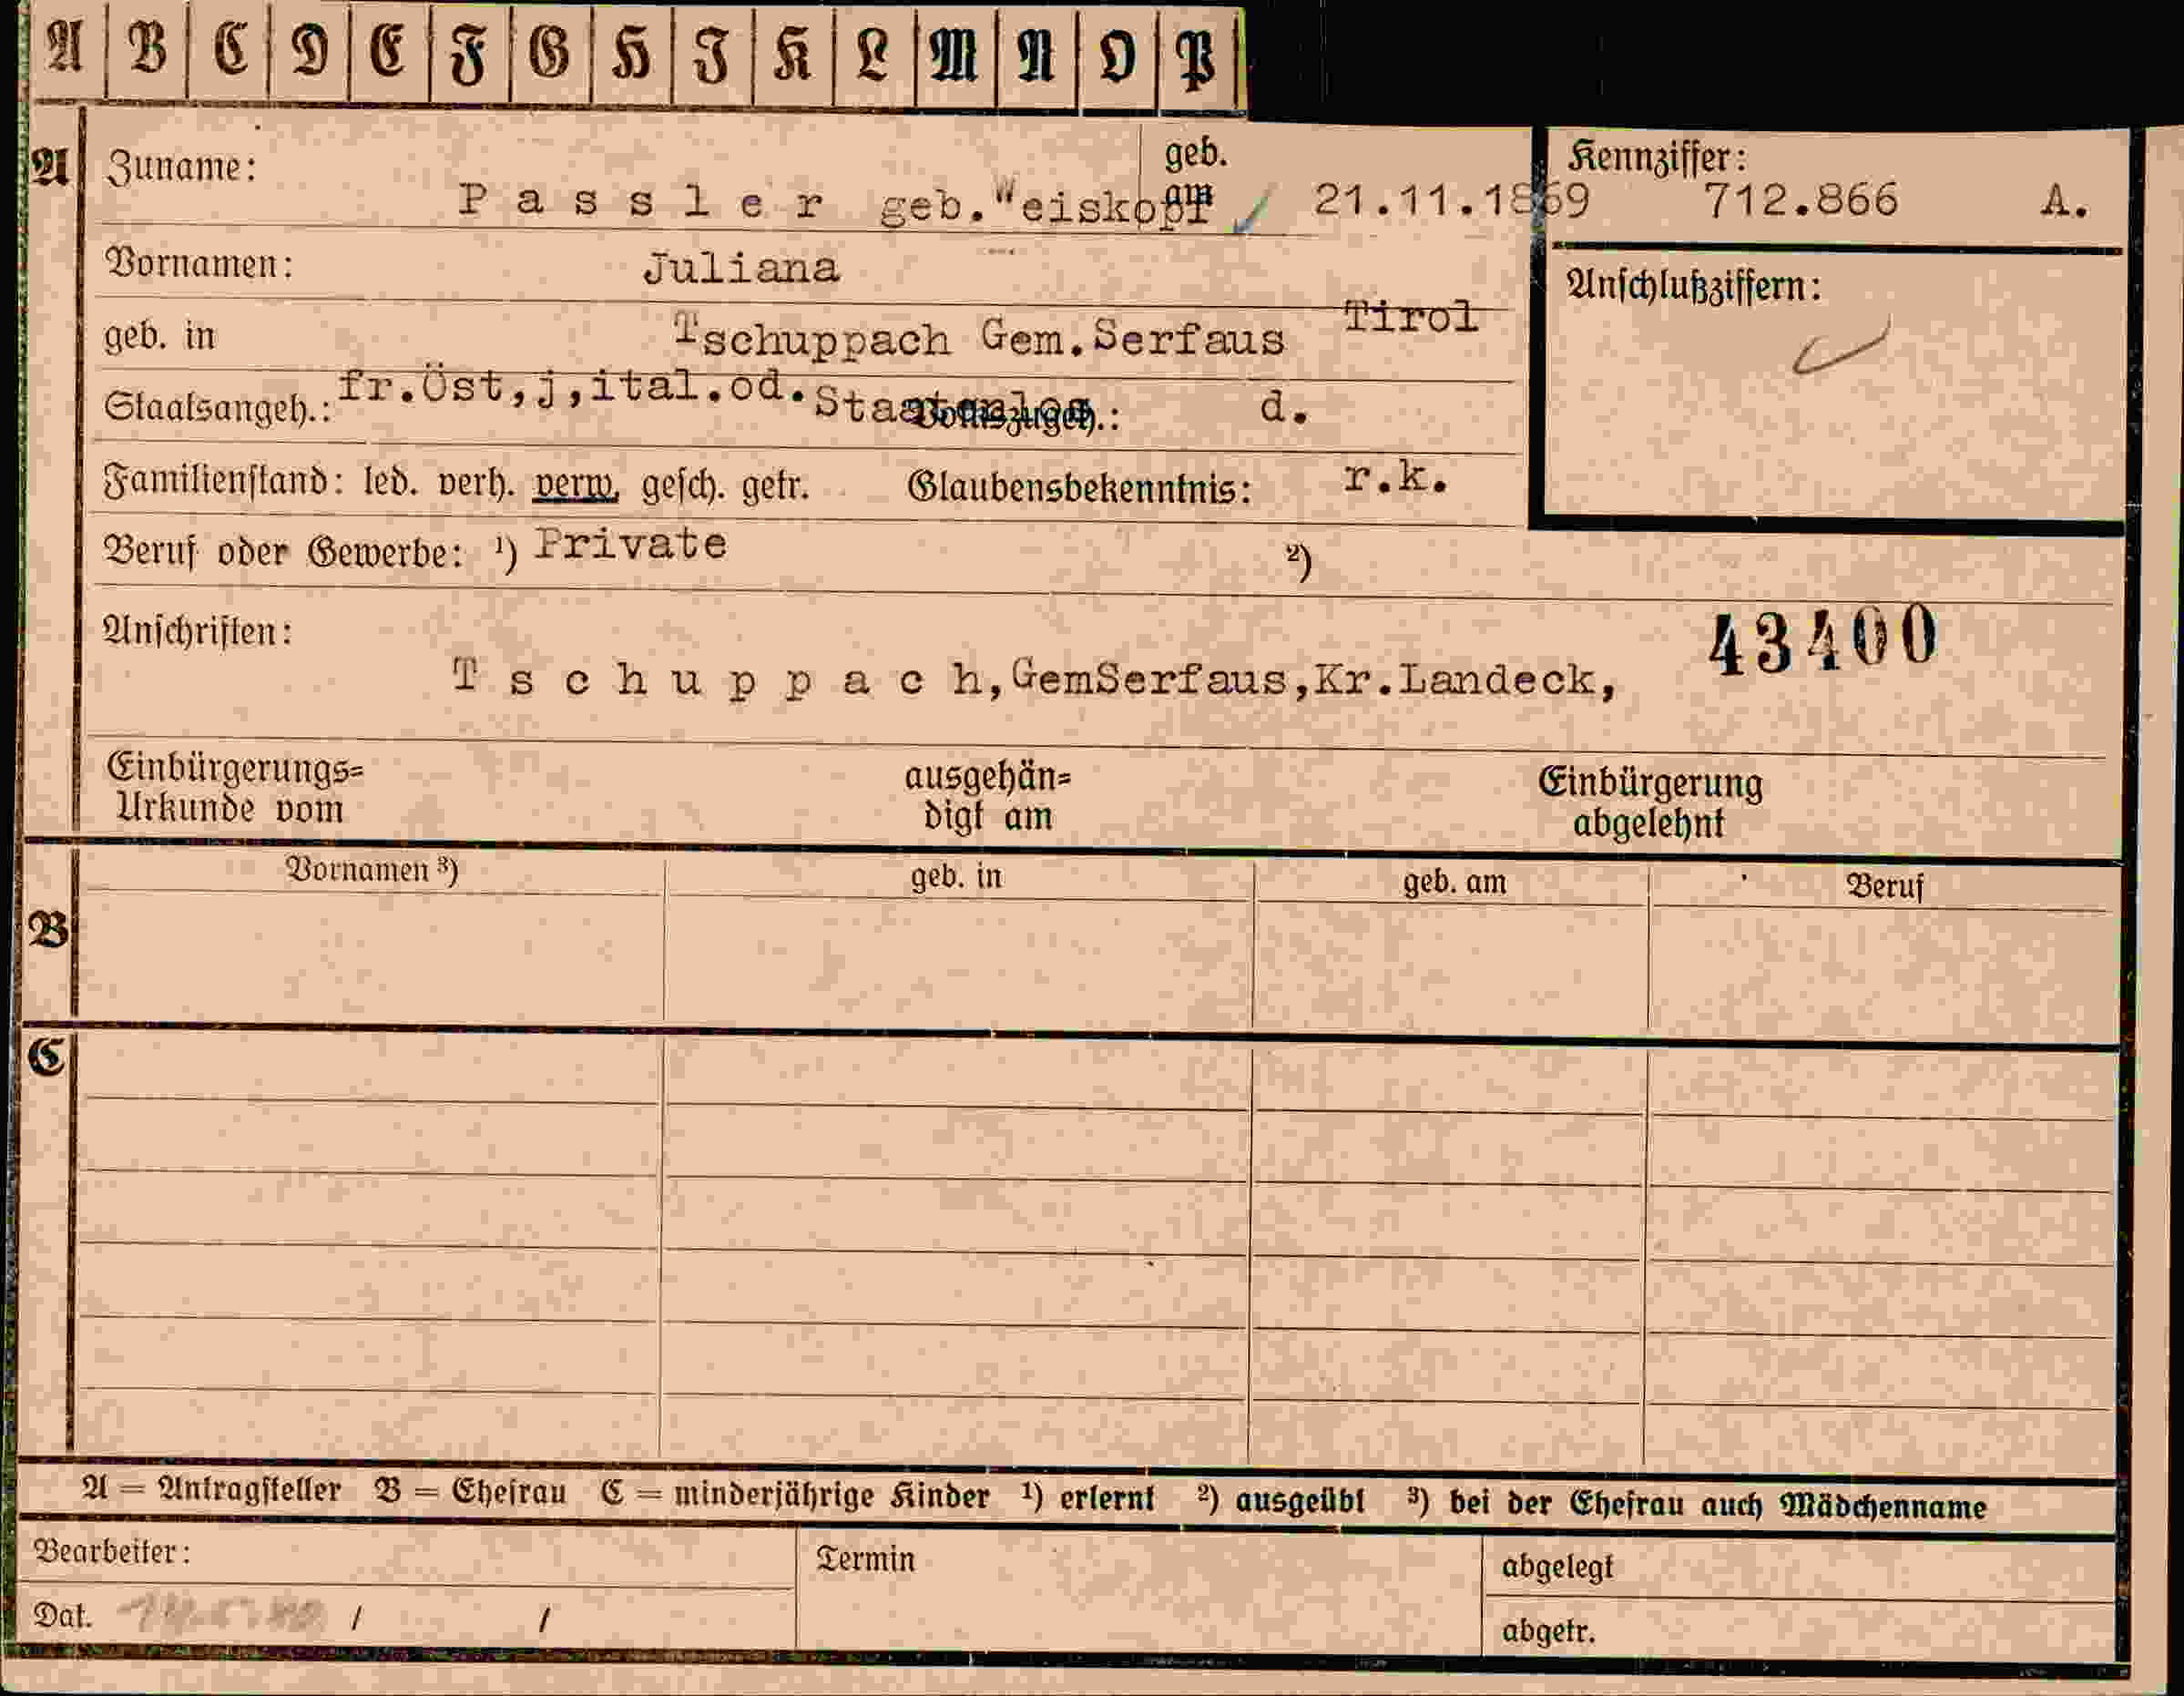 A B C D E F G H I K L M N O P
A Zuname: P a s s l e r geb. Weiskopf geb. am 21.11.1869 Kennziffer: 712.866 A.
Vornamen: Juliana
Anschlußziffern:
geb. in Tschuppach Gem.Serfaus Tirol
Staatsangeh.: fr.Öst,j,ital.od.Staatenlos Volkszugeh.: d.
Familienstand: led. verh. verw. gesch. getr. Glaubensbekenntnis: r.k.
Beruf oder Gewerbe: ¹) Private ²)
Anschriften: 43400
T s c h u p p a c h,GemSerfaus,Kr.Landeck,
Einbürgerungs= ausgehän= Einbürgerung
Urkunde vom digt am abgelehnt
Vornamen ³) geb. in geb. am Beruf
B
C
A = Antragsteller B = Ehefrau C = minderjährige Kinder ¹) erlernt ²) ausgeübt ³) bei der Ehefrau auch Mädchenname
Bearbeiter: Termin abgelegt
Dat. / / abgetr.